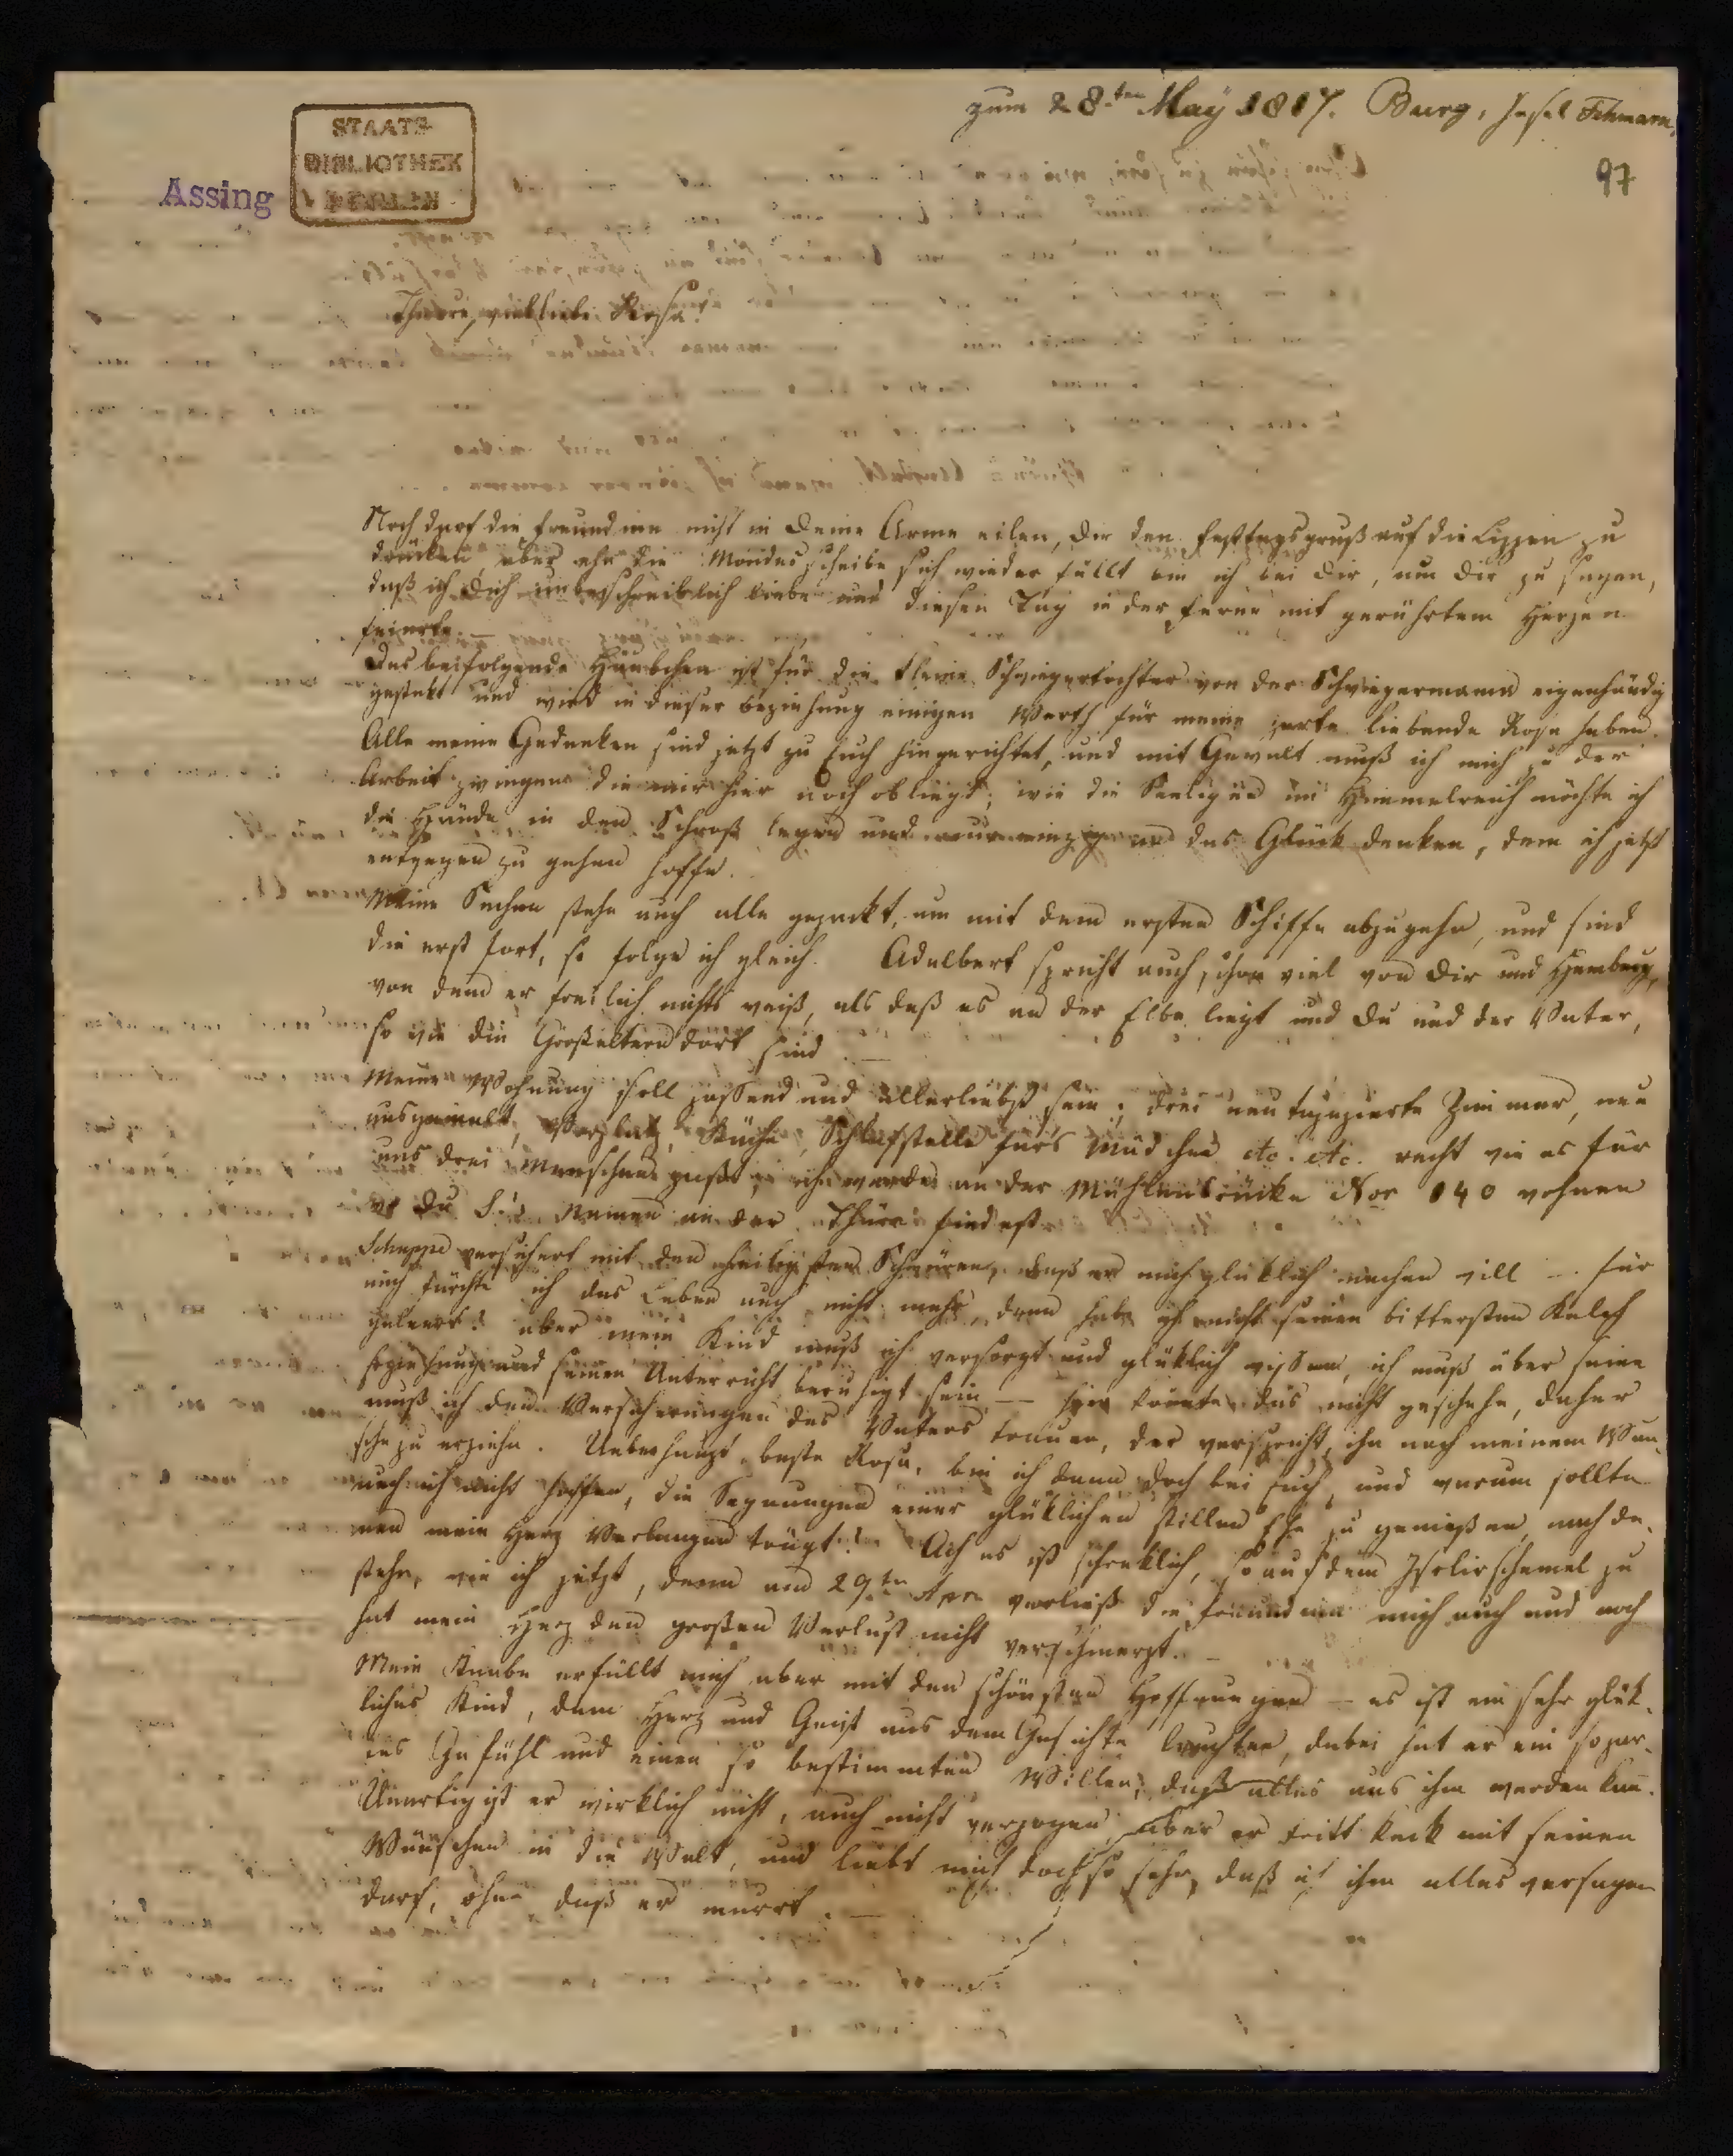 zum 28ten May 1817. Burg, Insel Fehmarn,
97
Assing
STAATS-
BIBLIOTHEK
BERLIN
Theure, vielliebe Rosa!
Noch darf die Freundinn nicht in Deine Arme eilen, Dir den Festtagsgruß auf die Lippen zu
drücken, aber ehe die Mondesscheibe sich wieder füllt bin ich bei Dir, um Dir zu sagen,
daß ich Dich unbeschreiblich liebe und diesen Tag in der Ferne mit gerührtem Herzen
feierte. —
Das beifolgende Häubchen ist für die kleine Schwiegertochter von der Schwiegermama eigenhändig
gestikt und wird in dieser Beziehung einigen Werth für meine zarte liebende Rosa haben.
Alle meine Gedanken sind jetzt zu Euch hingerichtet, und mit Gewalt muß ich mich zu der
Arbeit zwingen die mir hier noch obliegt; wie die Seeligen im Himmelreich möchte ich
die Hände in den Schooß legen und nur einzig an das Glük denken, dem ich jetzt
entgegen zu gehen hoffe.
Meine Sachen stehn auch alle gepackt, um mit dem ersten Schiffe abzugehn, und sind
die erst fort, so folge ich gleich. Adalbert spricht auch schon viel von Dir und Hamburg,
von dem er freilich nichts weiß, als daß es an der Elbe liegt und Du und der Vater,
so wie die Großeltern dort sind. —
Meine Wohnung soll passend und allerliebst sein; drei neu tapezierte Zimmer, neu
ausgemalt, Vorplatz, Küche, Schlafstelle fürs Mädchen etc. etc. recht wie es für
uns drei Menschen paßt; wir werden an der Mühlenbrücke Nor 140 wohnen
wo Du S's Namen an der Thüre findest.
Schuppe versichert mit den heiligsten Schwüren, daß er mich glüklich machen will — für
mich fürchte ich das Leben auch nicht mehr, denn habe ich nicht seinen bittersten Kelch
geleert? aber mein Kind muß ich versorgt und glüklich wissen, ich muß über seine
Erziehung und seinen Unterricht beruhigt sein — hier konnte das nicht geschehn, daher
muß ich den Versicherungen des Vaters trauen, der verspricht, ihn nach meinem Wun-
sche zu erziehn. Ueberhaupt, beste Rosa, bin ich dann doch bei Euch, und warum sollte
auch ich nicht hoffen, die Segnungen einer glüklichen stillen Ehe zu genießen, nach de-
nen mein Herz Verlangen trägt? Ach es ist schreklich, so auf dem Isolirschemel zu
stehn, wie ich jetzt, denn am 29ten Apr. verließ die Freundinn mich auch und noch
hat mein Herz den großen Verlust nicht verschmerzt. —
Mein Knabe erfüllt mich aber mit den schönsten Hoffnungen — es ist ein sehr glük-
liches Kind, dem Herz und Geist aus dem Gesichte leuchten, dabei hat er ein so zar-
tes Gefühl und einen so bestimmten Willen, daß alles aus ihm werden kan.
Unartig ist er wirklich nicht, auch nicht verzogen, aber er tritt keck mit seinen
Wünschen in die Welt, und liebt mich doch so sehr, daß ich ihm alles versagen
darf, ohne daß er murrt. —